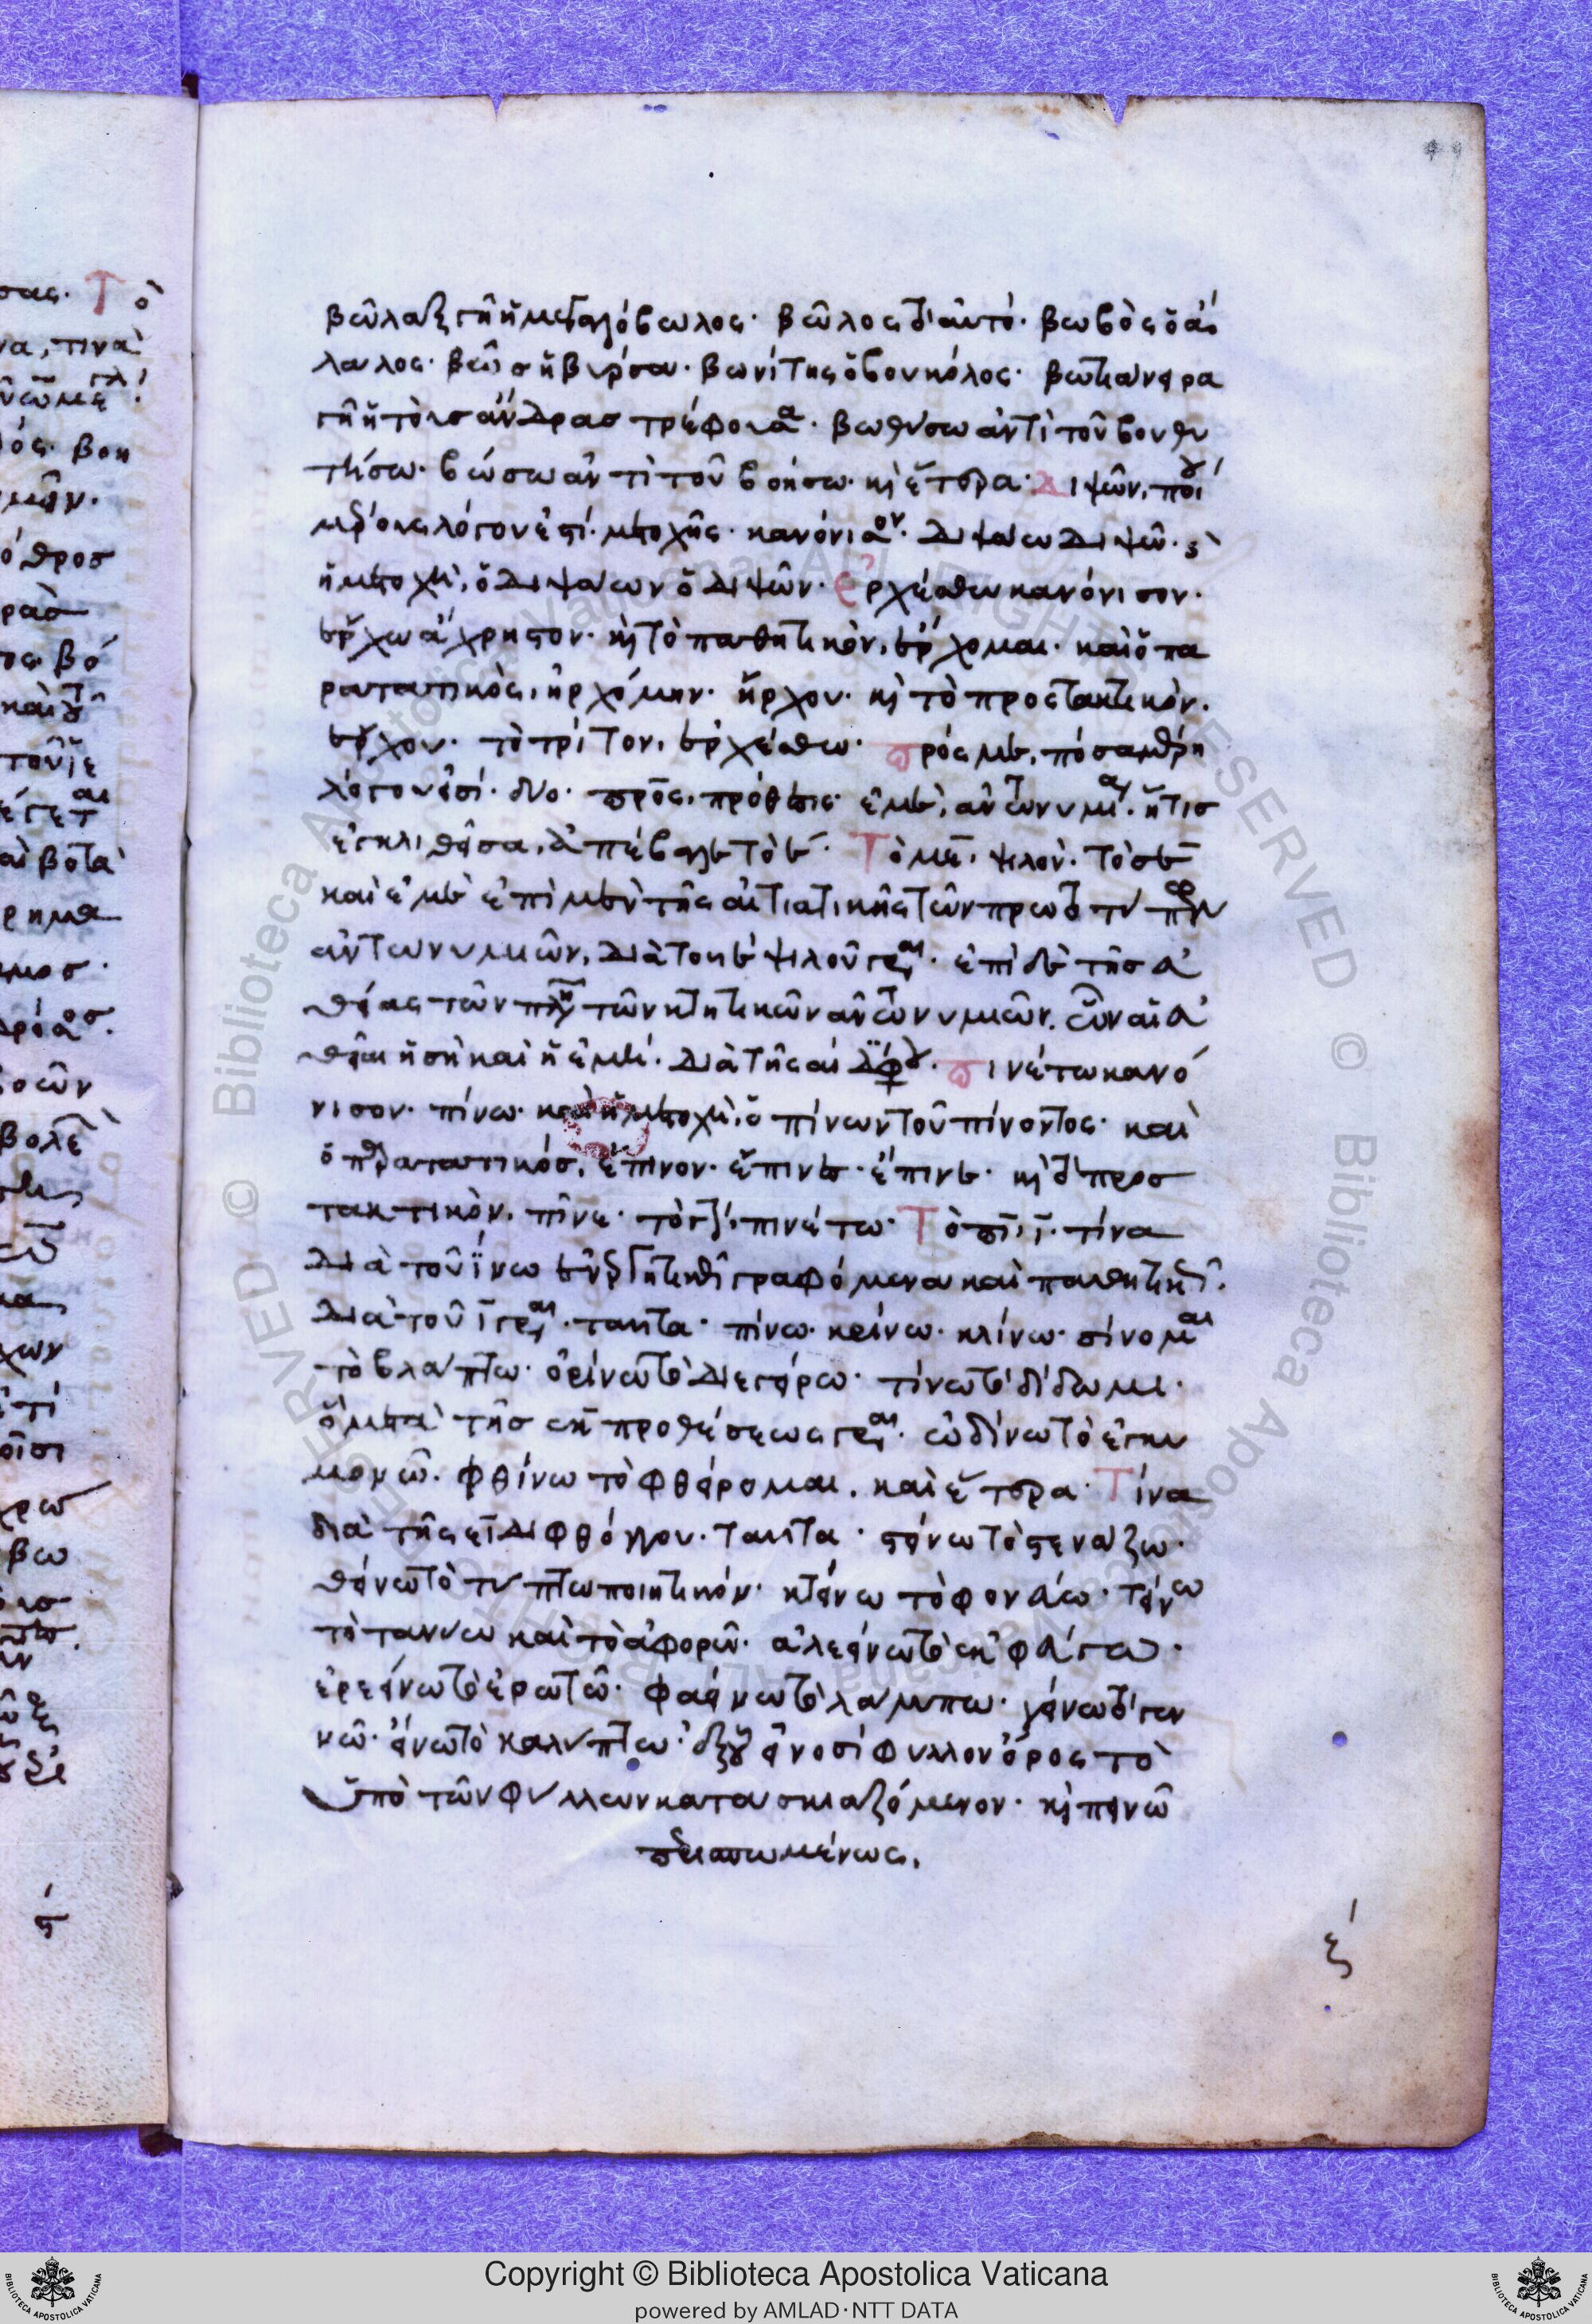 βῶλαξ γῆ ἡ μεγαλόβωλος· βῶλος τὸ αὐτό· βωβὸς ὁ ἄ
λαλος· βῶς ἡ βύρσα· βωνίτης ὁ βουκόλος· βωτιάνειρα
γῆ ἡ τοὺς ἄνδρας τρέφουσα· βωθύσω ἀντὶ τοῦ βουθυ
τήσω· βώσω ἀντὶ τοῦ βοήσω· καὶ ἕτερα· Διψῶν, ποί
μέρους λόγου ἐστί· μετοχῆς· κανόνισον· διψάω διψῶ·
ἡ μετοχὴ, ὁ διψάων ὁ διψῶν· Ἐρχέσθω κανόνισον·
ἔρχω ἄχρηστον· καὶ τὸ παθητικὸν, ἔρχομαι· καὶ ὁ πα
ρατατικὸς, ἠρχόμην· ἤρχου· καὶ τὸ προστακτικὸν,
ἔρχου· τὸ τρίτον, ἐρχέσθω· Πρός με, πόσα μέρη
λόγου εἰσί· δύο· πρὸς, πρόθεσις· ἐμὲ, ἀντωνυμία· ἥτις
ἐγκλιθεῖσα, ἀπέβαλε τὸ ε· Τὸ με, ψιλόν· τὸ σὲ
καὶ ἐμὲ ἐπὶ μὲν τῆς αἰτιατικῆς τῶν πρωτοτύπων
ἀντωνυμιῶν, διὰ τοῦ ε ψιλοῦ γράφεται· ἐπὶ δὲ τῆς εὐ
θείας τῶν πληθυντικῶν τῶν κτητικῶν ἀντωνυμιῶν, ὧν αἱ εὐ
θεῖαι ἡ σὴ καὶ ἡ ἐμὴ· διὰ τῆς αι διφθόγγου· Πινέτω κανό
νισον· πίνω· καὶ ἡ μετοχὴ, ὁ πίνων τοῦ πίνοντος· καὶ
ὁ παρατατικός, ἔπινον· ἔπινες· ἔπινε· καὶ τὸ προσ
τακτικὸν, πῖνε· τὸ τρίτον, πινέτω· Τὸ πι, ι· τίνα
διὰ τοῦ ίνω ἐνεργητικὰ γραφόμενα καὶ παθητικὰ
διὰ τοῦ ι γράφεται· ταῦτα· πίνω· κρίνω· κλίνω· σίνομαι
τὸ βλάπτω· ὀρίνω τὸ διεγείρω· τίνω τὸ δίδωμι·
ὃ μετὰ τῆς ἐκ προθέσεως γράφεται· ὠδίνω τὸ ἐγκυ
μονῶ· φθίνω τὸ φθείρομαι· καὶ ἕτερα· Τίνα
διὰ τῆς ει διφθόγγου· ταῦτα· στείνω τὸ στενάζω·
θείνω τὸ τύπτω ποιητικόν· κτείνω τὸ φονεύω· τείνω
τὸ τανύω καὶ τὸ ἀφορῶ· ἀλεείνω τὸ ἐκφεύγω·
ἐρεείνω τὸ ἐρωτῶ· φαείνω τὸ λάμπω· γείνω τὸ γεν
νῶ· εἴνω τὸ καλύπτω· ἐξ οὗ εἰνοσίφυλλον ὄρος τὸ
ὑπὸ τῶν φύλλων κατασκιαζόμενον· καὶ πεινῶ
περισπωμένως.
ξ